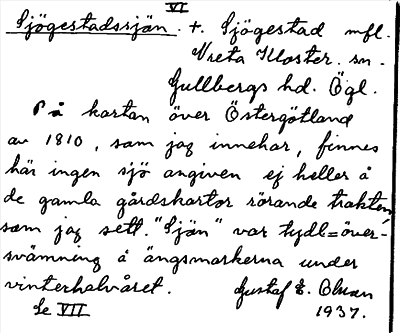 VI
Sjögestadssjän. +. Sjögestad mfl.
Vreta Kloster. sn.
Gullbergs hd. Ögl.
På kartan över Östergötland
av 1810, som jag innehar, finnes
här ingen sjö angiven ej heller å
de gamla gårdskartor rörande trakten,
som jag sett. "Sjän" var tydl=över-
svämning å ängsmarkerna under
vinterhalvåret. Gustaf E. Olsson
Se VII 1937.